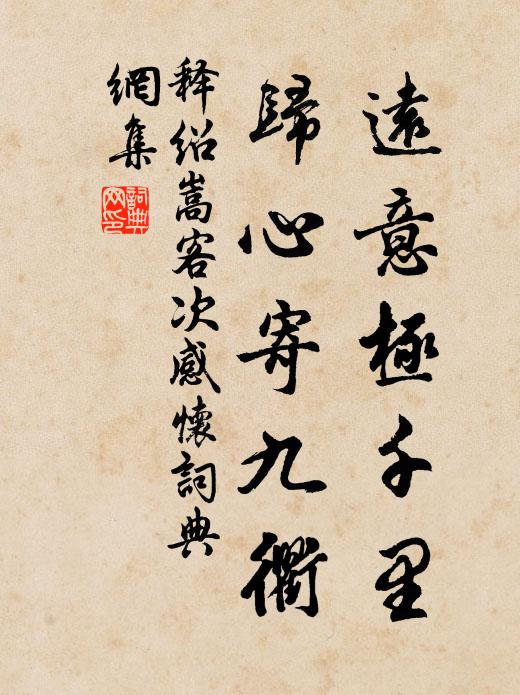 遠意極千里
歸心寄九衢
释绍嵩客次感懷詞典
網集
詞典
网印